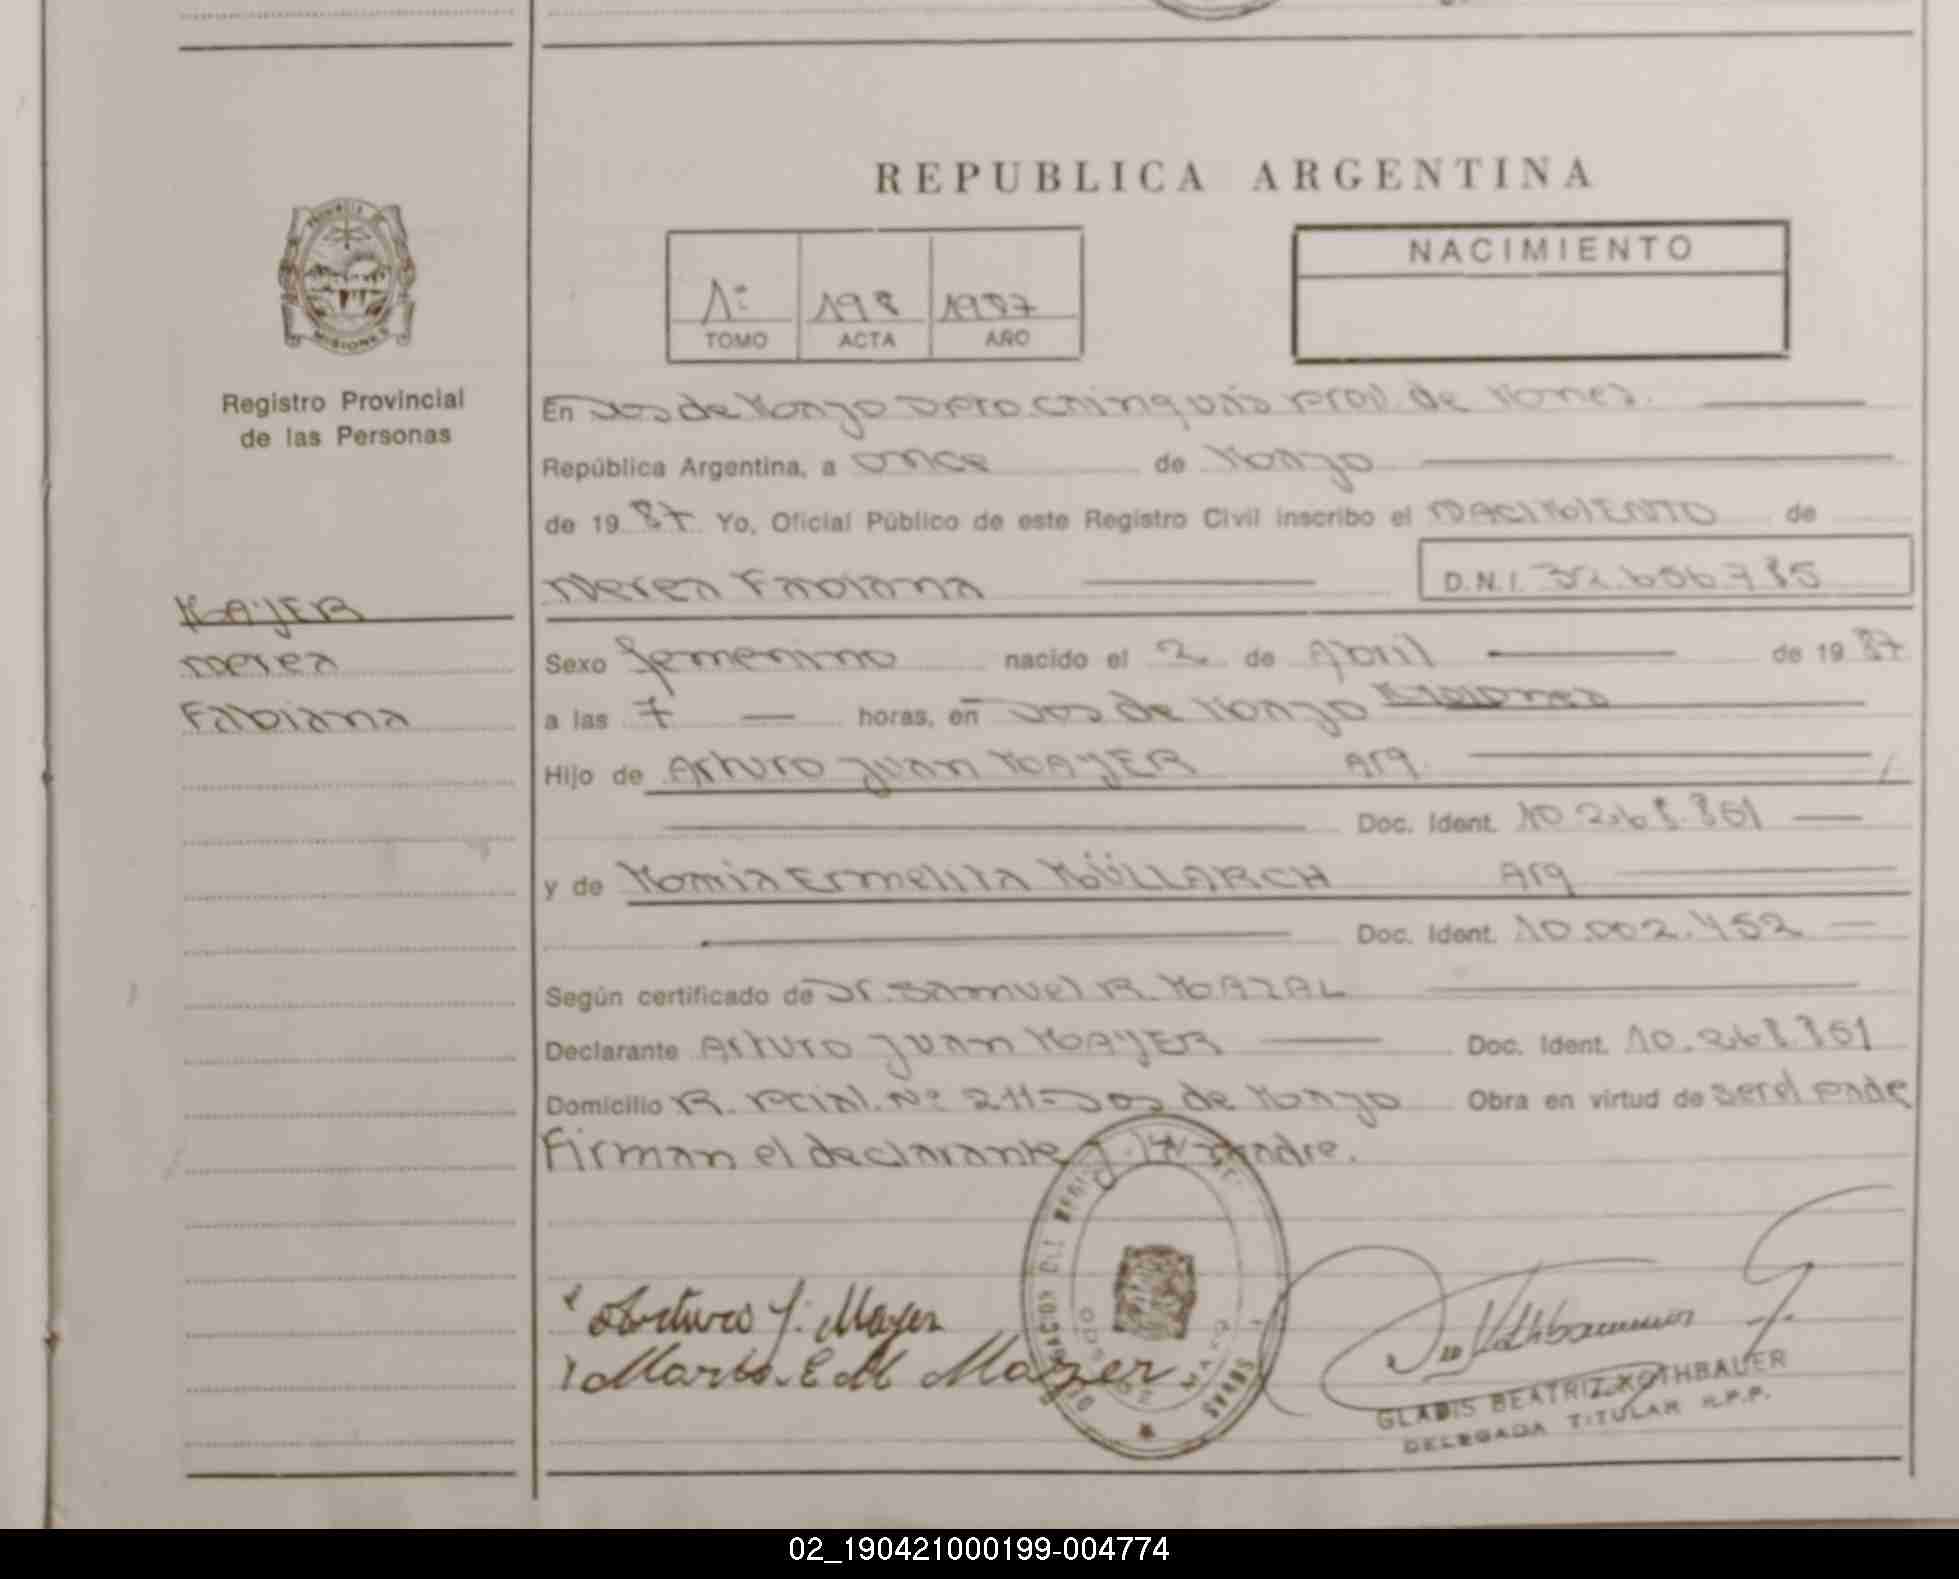 REPUBLICA ARGENTINA
PROVINCIA DE
MISIONES
NACIMIENTO
1º 198 1987
TOMO ACTA AÑO
Registro Provincial
de las Personas
En Dos de Mayo Dpto Cainguás Prov. de Mnes.
República Argentina, a once de Mayo
de 19 87 Yo, Oficial Público de este Registro Civil inscribo el NACIMIENTO de
Nerea Fabiana D.N.I. 32.656.785
MAYER
Nerea
Fabiana
Sexo femenino nacido el 2 de Abril de 19 87
a las 7 horas, en Dos de Mayo Misiones
Hijo de Arturo Juan MAYER Arg.
Doc. Ident. 10.268.861
y de María Ermelita MÜLLARCH Arg
Doc. Ident. 10.002.452
Según certificado de Dr. Samuel R. MAZAL
Declarante Arturo Juan MAYER Doc. Ident. 10.268.861
Domicilio R. Pcial. Nº 211 - Dos de Mayo Obra en virtud de ser el padre
Firman el declarante y la madre.
Arturo J. Mayer
Maria. E. M Mayer
GLADIS BEATRIZ KOTHBAUER
DELEGADA TITULAR R.P.P.
02_190421000199-004774